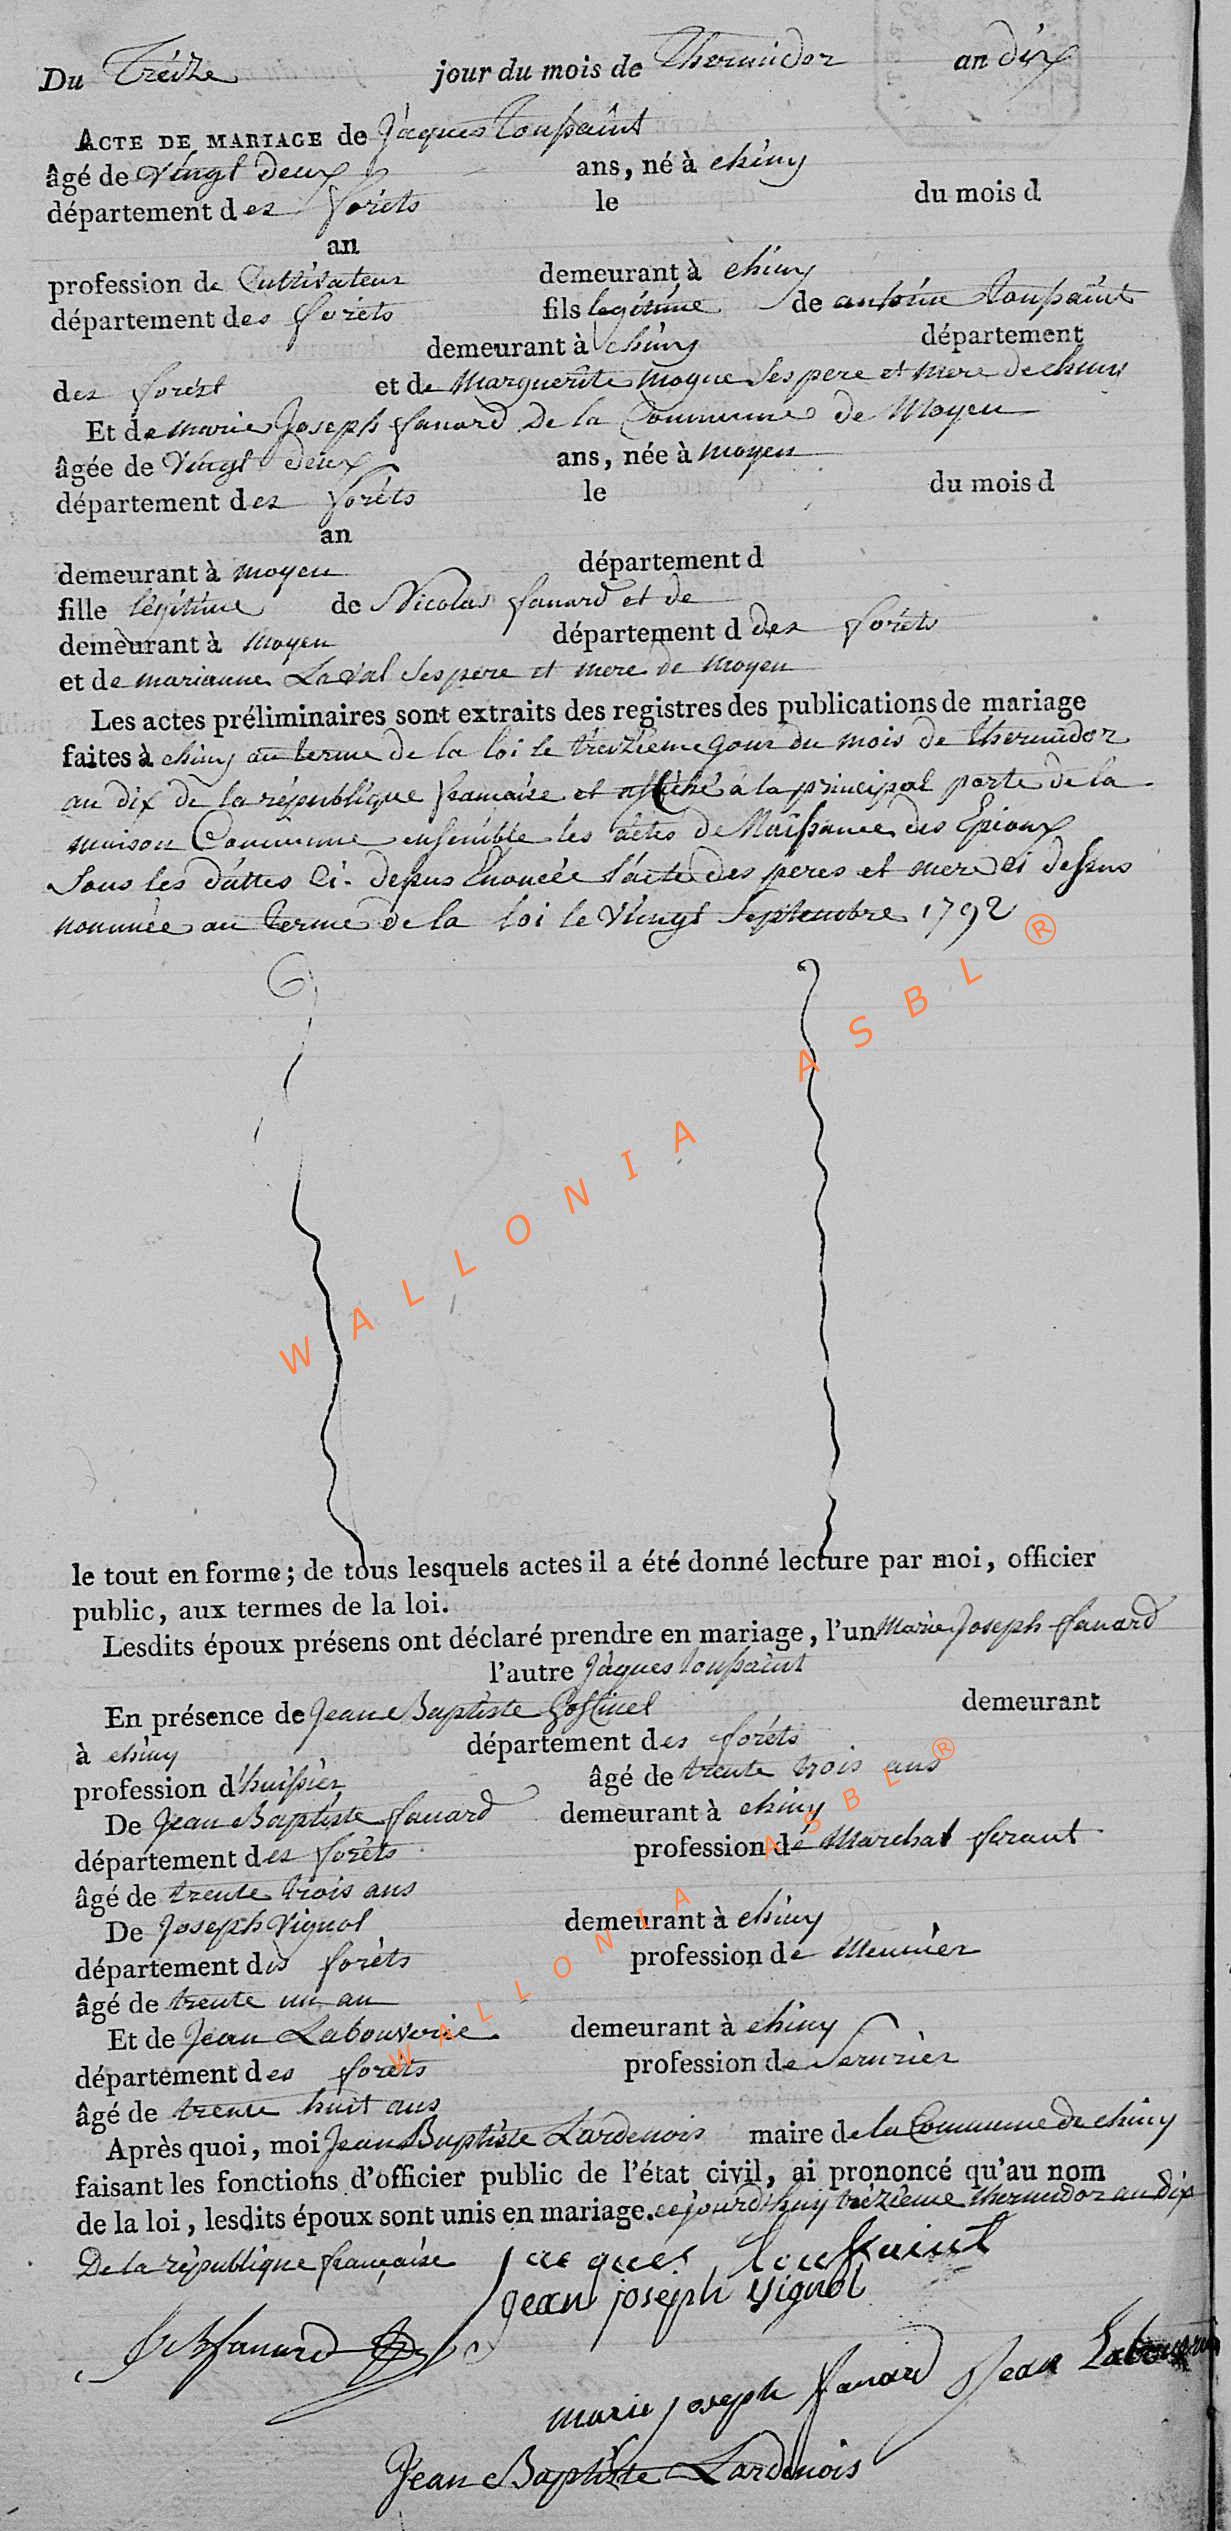 Du Treize jour du mois de Thermidor an dix
ACTE DE MARIAGE de Jâques Toussaint
âgé de vingt deux ans, né à chiny
département des forêts le du mois d
an
profession de Cultivateur demeurant à chiny
département des forêts fils legitime de antoine Toussaint
demeurant à chiny département
des forêst et de Marguerite moque Ses pere et mere de chiny
Et de marie Joseph fanard De la Commune de Moyen
âgée de Vingt deux ans, née à moyen
département des forêts le du mois d
an
demeurant à moyen département d
fille légitime de Nicolas fanard et de
demeurant à moyen département d des forêts
et de marianne Laval Ses pere et mere de moyen
Les actes préliminaires sont extraits des registres des publications de mariage
faites à chiny au terme de la loi le treizieme jour du mois de thermidor
an dix de la république francaise et affiché a la principal porte de la
maison Commune ensemble les actes de Naissance des Epioux
Sous les dattes Ci- depus Enoncée l'acte des peres et mere ci dessus
nommée au terme de la loi le vingt Septembre 1792
WALLONIA ASBL ®
le tout en forme; de tous lesquels actes il a été donné lecture par moi, officier
public, aux termes de la loi.
Lesdits époux présens ont déclaré prendre en mariage, l'un Marie Joseph fanard
l'autre Jâques Toussaint
En présence de Jean Baptiste Gossinel demeurant
à chiny département des forêts
profession d'huissier âgé de trente trois ans
De Jean Baptiste fanard demeurant à chiny
département des forêts profession de Marchal ferant
âgé de trente trois ans
De Joseph Vignol demeurant à chiny
département dès forêts profession de Meunier
âgé de trente un an
Et de Jean Labouverie demeurant à chiny
département des forêts profession de Serurier
âgé de trente huit ans
WALLONIA ASBL ®
Après quoi, moi Jean Baptiste Lardenois maire de la Commune de chiny
faisant les fonctions d'officier public de l'état civil, ai prononcé qu'au nom
de la loi, lesdits époux sont unis en mariage. cejourd'huy trézieme thermidor an dix
De la république française jacques Toussaint
jean joseph vignol
fanard
marie joseph fanard Jean Labouverie
Jean Baptiste Lardenois